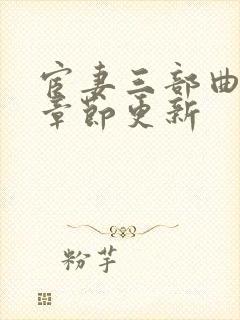 宦妻三部曲
章节更新
粉芋